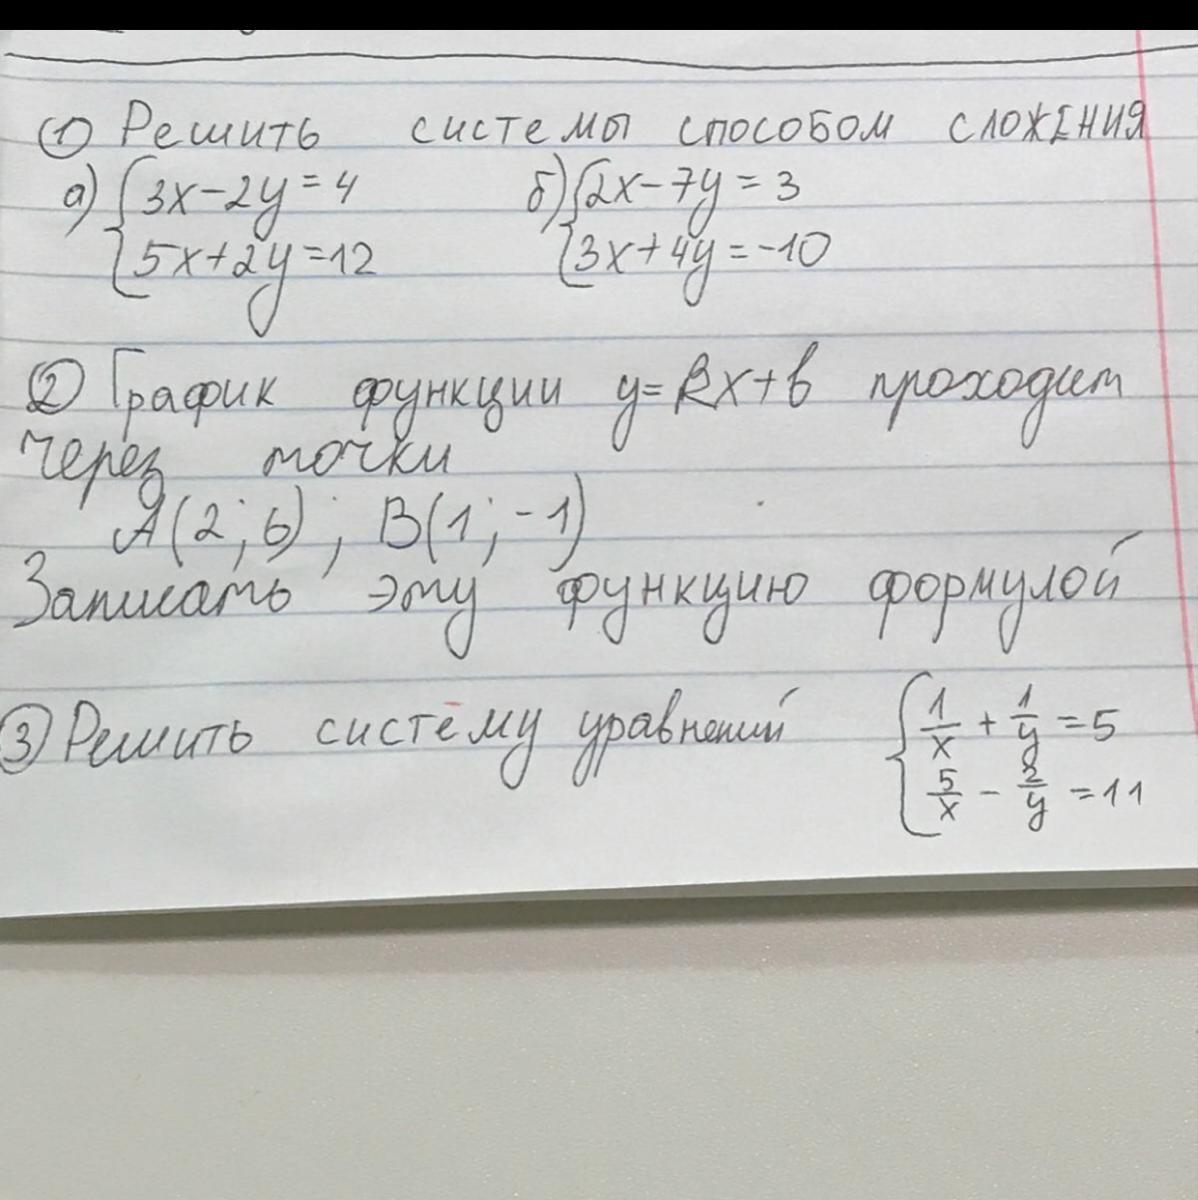 ① Решить системы способом сложения
а) { 3x-2y=4 б) { 2x-7y=3
5x+2y=12 3x+4y=-10
② График функции y=kx+b проходит
через точки
A(2;6), B(1;-1)
Записать эту функцию формулой
③ Решить систему уравнений { 1/x + 1/y = 5
5/x - 2/y = 11